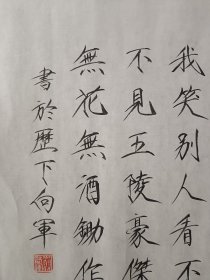 我笑别人看不
不見五陵豪傑
無花無酒鋤作
書於歷下向軍